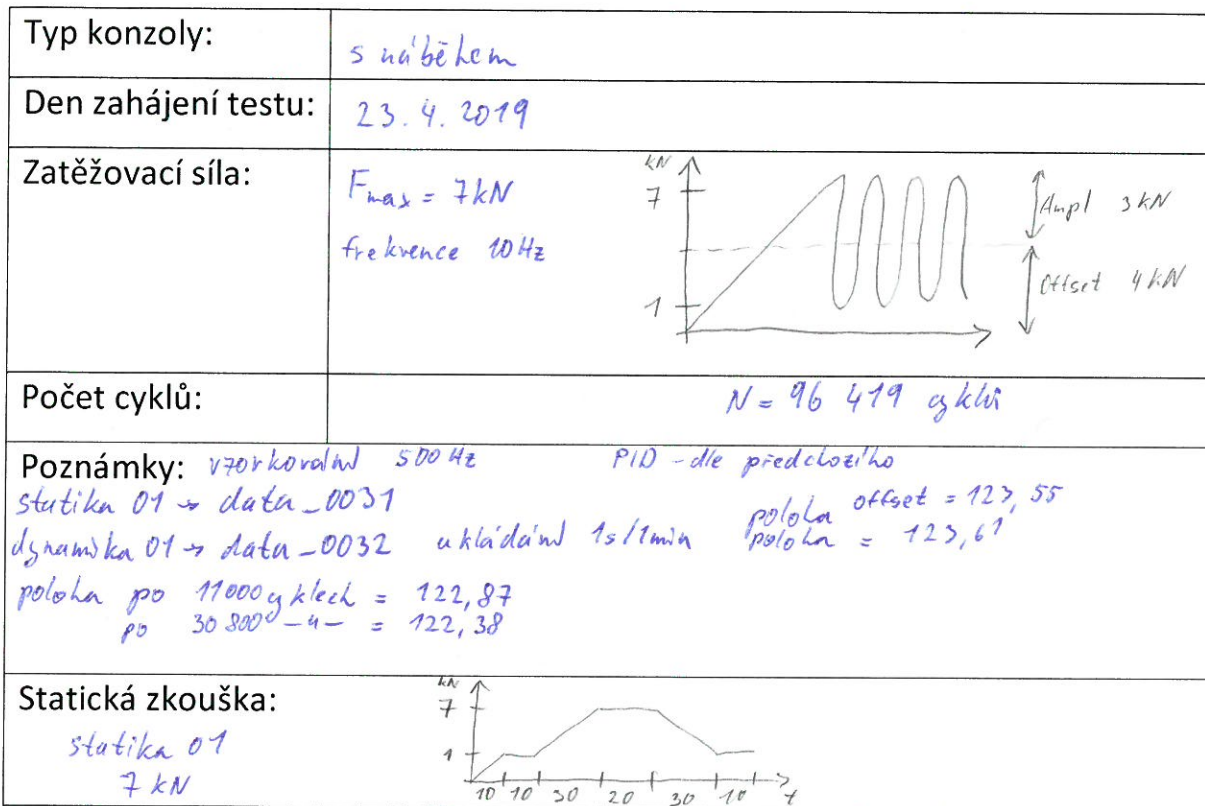 Typ konzoly: s náběhem
Den zahájení testu: 23. 4. 2019
Zatěžovací síla: Fmax = 7kN
frekvence 10Hz
kN
7
1
Ampl 3 kN
Offset 4 kN
Počet cyklů: N = 96 419 cyklů
Poznámky: vzorkování 500 Hz PID - dle předchozího
statika 01 → data_0031 poloha offset = 123,55
dynamika 01 → data_0032 ukládání 1s/1min poloha = 123,61
poloha po 11000 cyklech = 122,87
po 30 800 -"- = 122,38
Statická zkouška:
statika 01
7 kN
kN
7
1
10 10 30 20 30 10 t